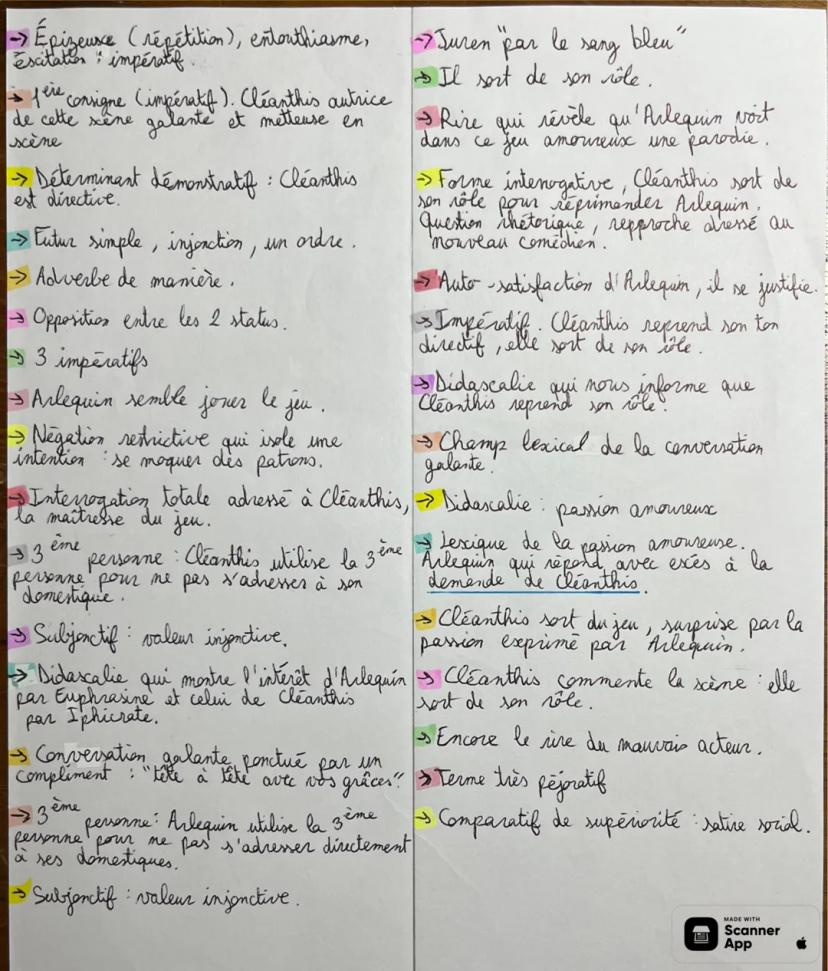 → Épizeuxe (répétition), entouthiasme,
éscitation : impératif.
→ 1ère consigne (impératif). Cléanthis autrice
de cette scène galante et metteuse en
scène
→ Déterminant démonstratif : Cléanthis
est directive.
→ Futur simple, injonction, un ordre.
→ Adverbe de manière.
→ Opposition entre les 2 status.
→ 3 impératifs
→ Arlequin semble jouer le jeu.
→ Négation restrictive qui isole une
intention : se moquer des patrons.
→ Interrogation totale adressé à Cléanthis,
la maîtresse du jeu.
→ 3ème personne : Cléanthis utilise la 3ème
personne pour ne pas s'adresser à son
domestique.
→ Subjonctif : valeur injonctive.
→ Didascalie qui montre l'intérêt d'Arlequin
par Euphrasine et celui de Cléanthis
par Iphicrate.
→ Conversation galante ponctué par un
compliment : "tête à tête avec vos grâces".
→ 3ème personne : Arlequin utilise la 3ème
personne pour ne pas s'adresser directement
à ses domestiques.
→ Subjonctif : valeur injonctive.
→ Juren "par le sang bleu"
→ Il sort de son rôle.
→ Rire qui révèle qu'Arlequin voit
dans ce jeu amoureux une parodie.
→ Forme interrogative, Cléanthis sort de
son rôle pour réprimander Arlequin.
Question rhétorique, repproche adressé au
nouveau comédien.
→ Auto-satisfaction d'Arlequin, il se justifie.
→ Impératif. Cléanthis reprend son ton
directif, elle sort de son rôle.
→ Didascalie qui nous informe que
Cléanthis reprend son rôle.
→ Champ lexical de la conversation
galante.
→ Didascalie : passion amoureux
→ Lexique de la passion amoureuse.
Arlequin qui répond avec excés à la
demande de Cléanthis.
→ Cléanthis sort du jeu, surprise par la
passion exprimé par Arlequin.
→ Cléanthis commente la scène : elle
sort de son rôle.
→ Encore le rire du mauvais acteur.
→ Terme très péjoratif
→ Comparatif de supériorité : satire social.
MADE WITH
Scanner
App